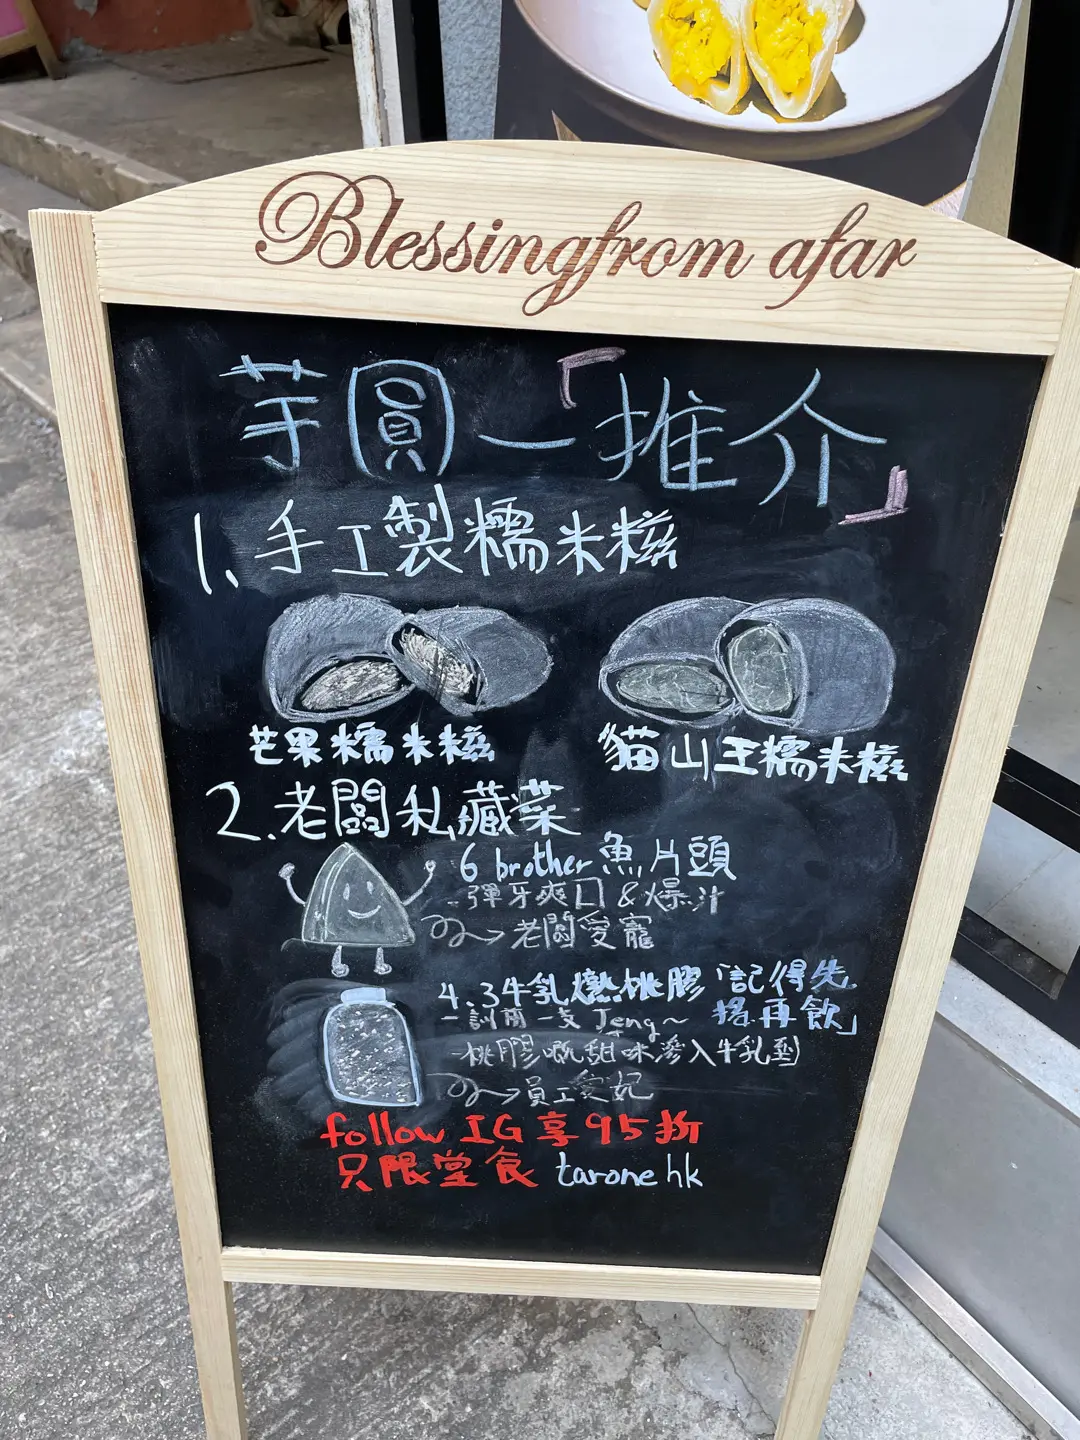 Blessingfrom afar
芋圓一「推介」
1. 手工製糯米糍
芒果糯米糍
貓山王糯米糍
2. 老闆私藏菜
6 brother魚片頭
-彈牙爽口&爆汁
老闆愛寵
4.3牛乳燉桃膠「記得先
搖再飲」
-支Jeng~
-桃膠嘅甜味滲入牛乳到
員工愛妃
follow IG享95折
只限堂食 tarone hk